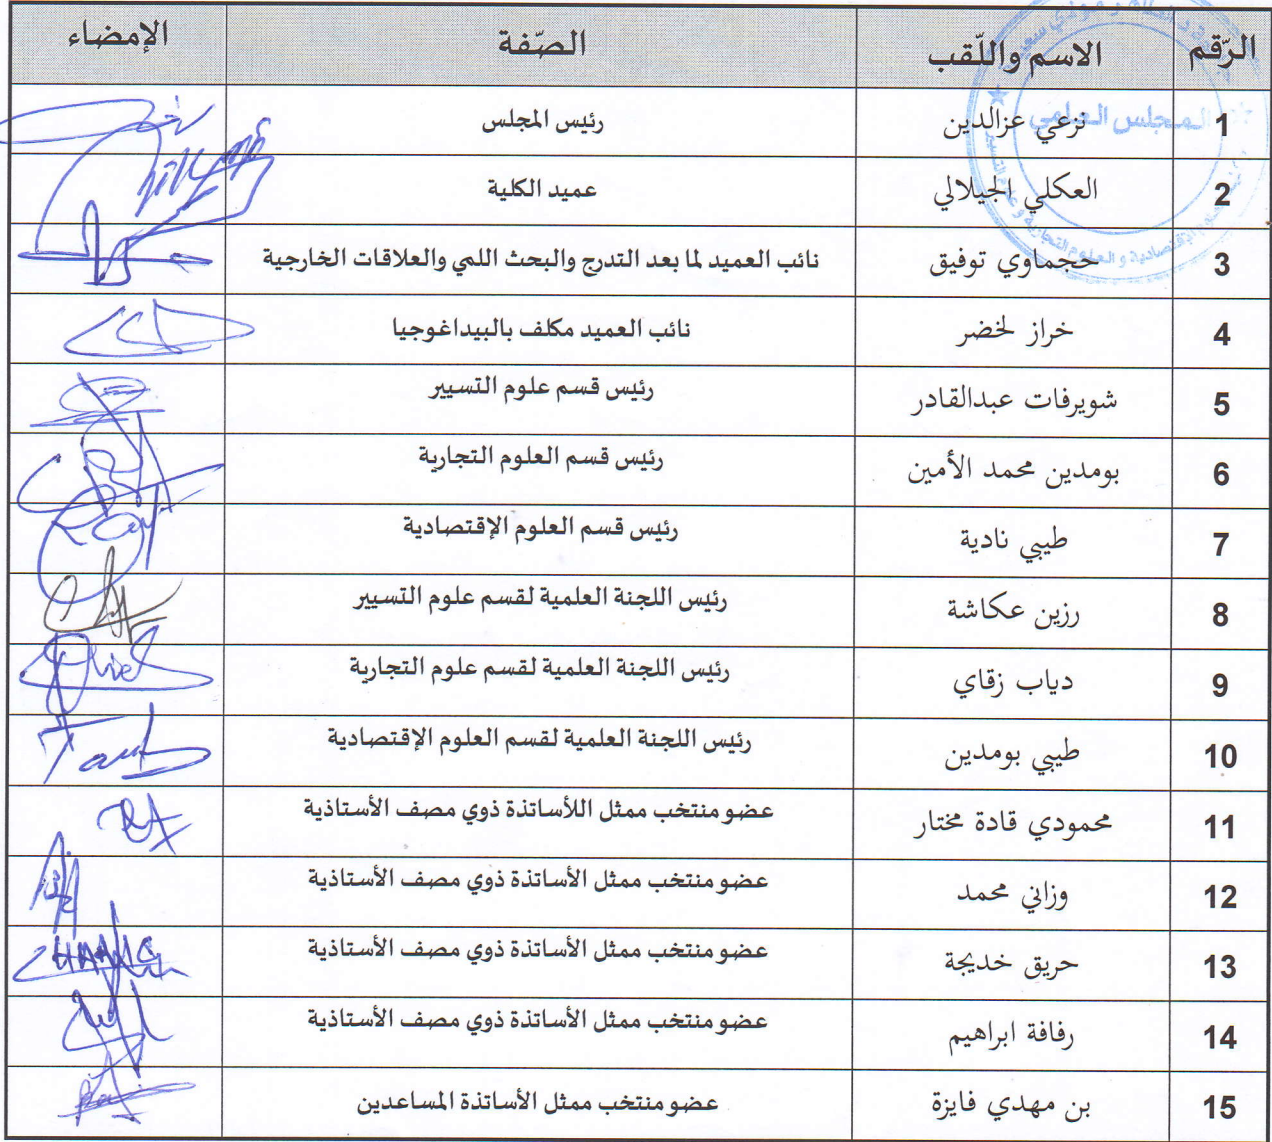 الرّقم الاسم واللّقب الصّفة الإمضاء
المجلس العلمي
1 نزعي عزالدين رئيس المجلس
2 العكلي الجيلالي عميد الكلية
3 حجماوي توفيق نائب العميد لما بعد التدرج والبحث اللمي والعلاقات الخارجية
4 خراز لخضر نائب العميد مكلف بالبيداغوجيا
5 شويرفات عبدالقادر رئيس قسم علوم التسيير
6 بومدين محمد الأمين رئيس قسم العلوم التجارية
7 طيبي نادية رئيس قسم العلوم الإقتصادية
8 رزين عكاشة رئيس اللجنة العلمية لقسم علوم التسيير
9 دياب زقاي رئيس اللجنة العلمية لقسم علوم التجارية
10 طيبي بومدين رئيس اللجنة العلمية لقسم العلوم الإقتصادية
11 محمودي قادة مختار عضو منتخب ممثل اللأساتذة ذوي مصف الأستاذية
12 وزاني محمد عضو منتخب ممثل الأساتذة ذوي مصف الأستاذية
13 حريق خديجة عضو منتخب ممثل الأساتذة ذوي مصف الأستاذية
14 رفافة ابراهيم عضو منتخب ممثل الأساتذة ذوي مصف الأستاذية
15 بن مهدي فايزة عضو منتخب ممثل الأساتذة المساعدين